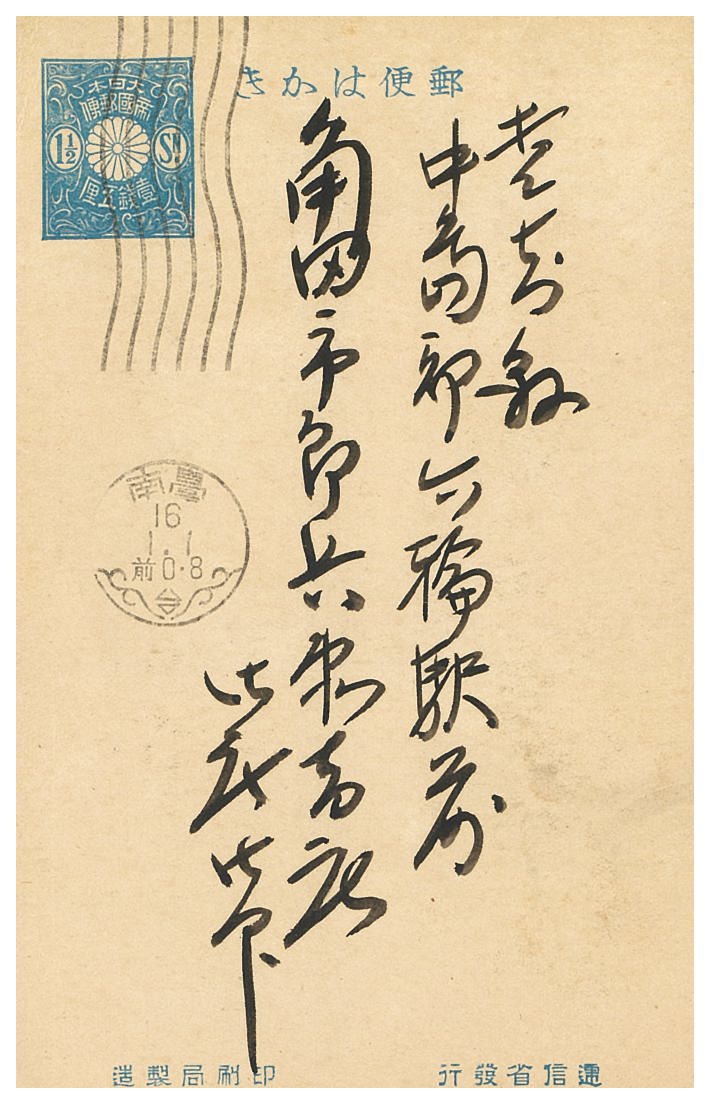 郵便はかき
大日本
帝國郵便
1½ SN
壹錢五厘
愛知縣
中島郡六輪駅前
角田市郎兵衛
16
1.1
前0-8
遞信省發行
印刷局製造